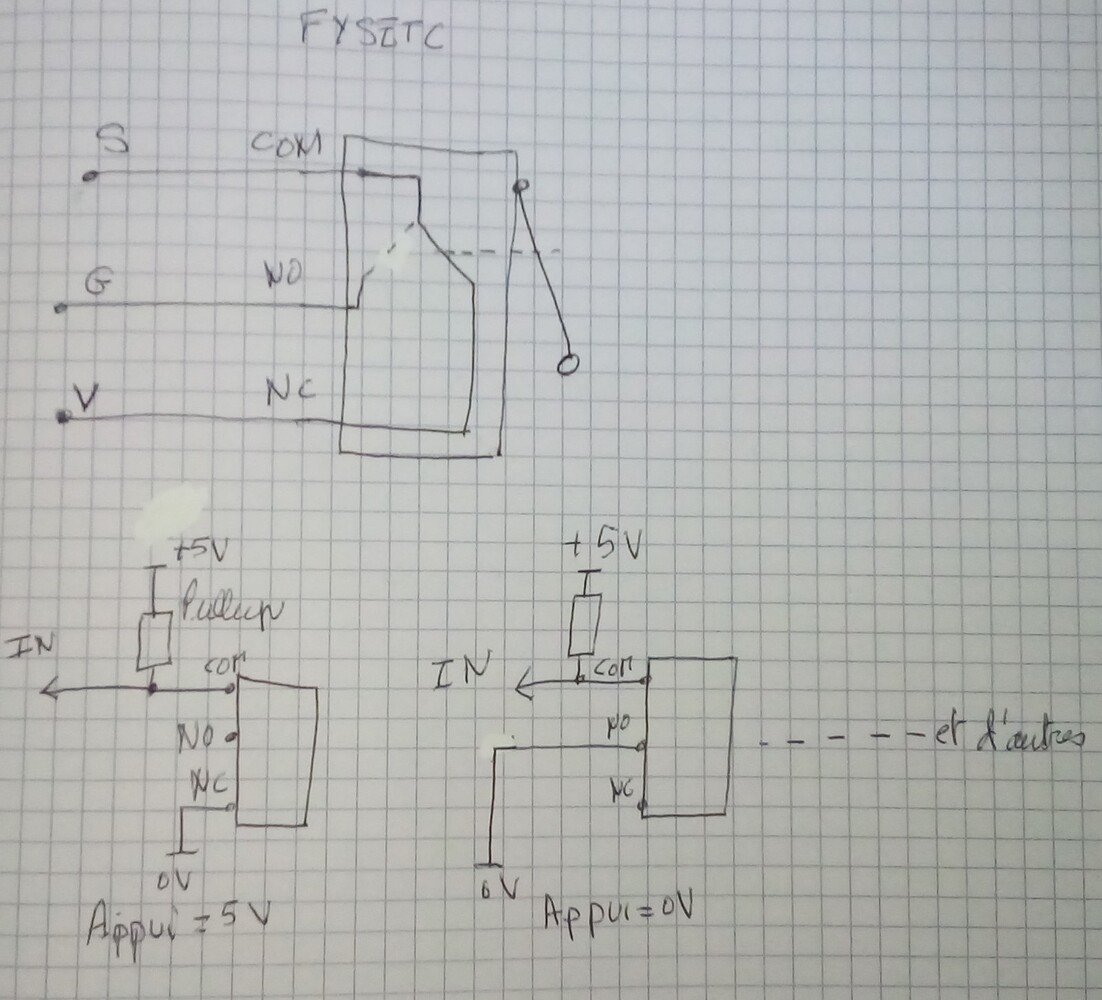 FYSETC
S COM
G NO
V NC
+5V
Pullup
IN
COM
NO
NC
0V
Appui = 5V
+5V
IN
COM
NO
NC
0V
Appui = 0V
- - - - - et d'autres